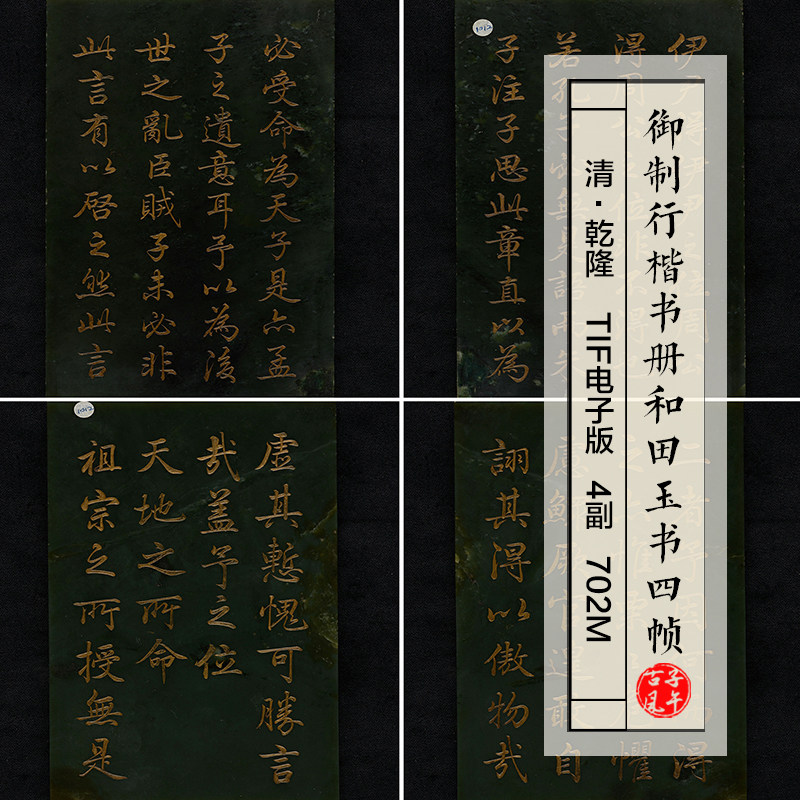 必受命為天子是亦孟
子之遺意耳予以為後
世之亂臣賊子未必非
此言有以啓之然此言
伊尹
得周
若孔
子注子思此章直以為
虛其慙愧可勝言
哉蓋予之位
天地之所命
祖宗之所授無是
得
懼
自
詡其得以傲物哉
御制行楷书册和田玉书四帧
清·乾隆 TIF电子版 4副 702M
子午古风